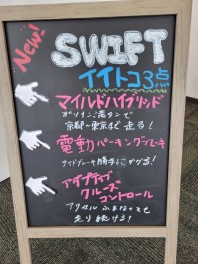 New!
SWIFT
イイトコ3点
マイルドハイブリッド
ガソリン満タンで
京都〜東京まで走る!
電動パーキングブレーキ
サイドブレーキ勝手にかかる!
アダプティブ
クルーズ
コントロール
アクセルふまなくても
走り続ける!